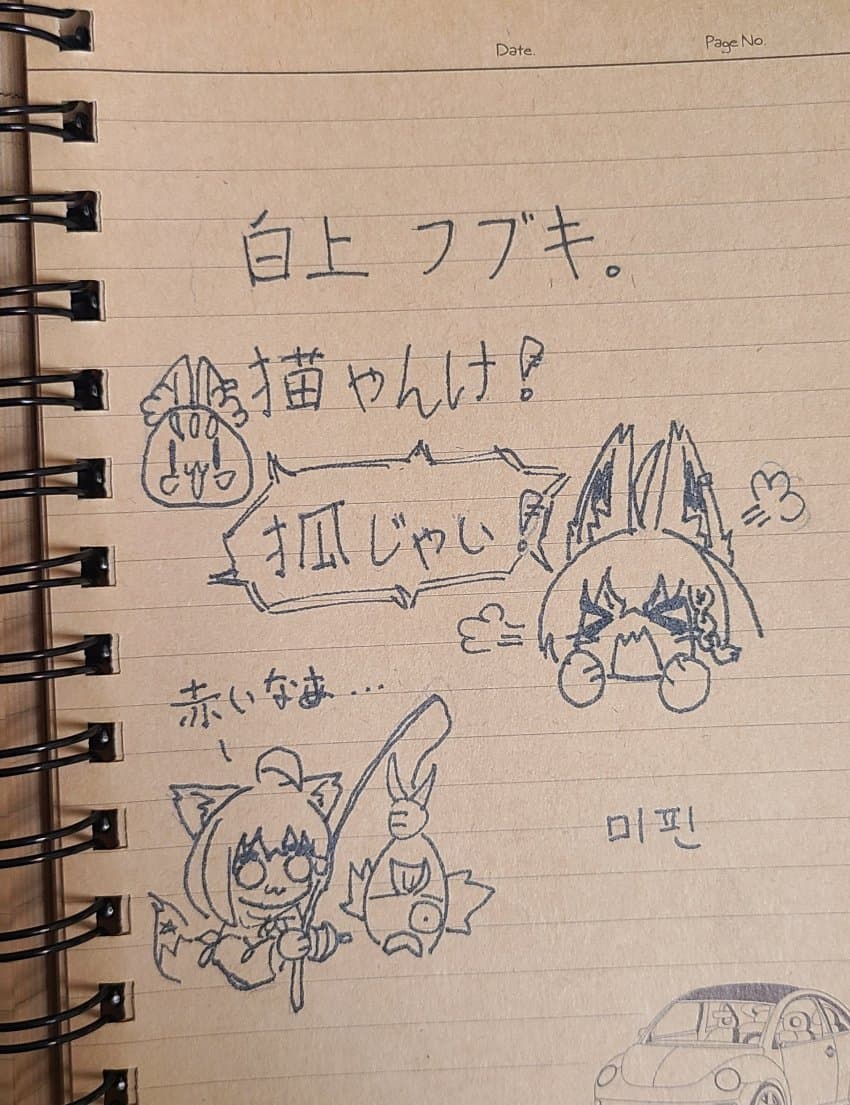 Date.
Page No.
白上 フブキ。
猫やんけ!
狐じゃい!
赤いなぁ...
미핀